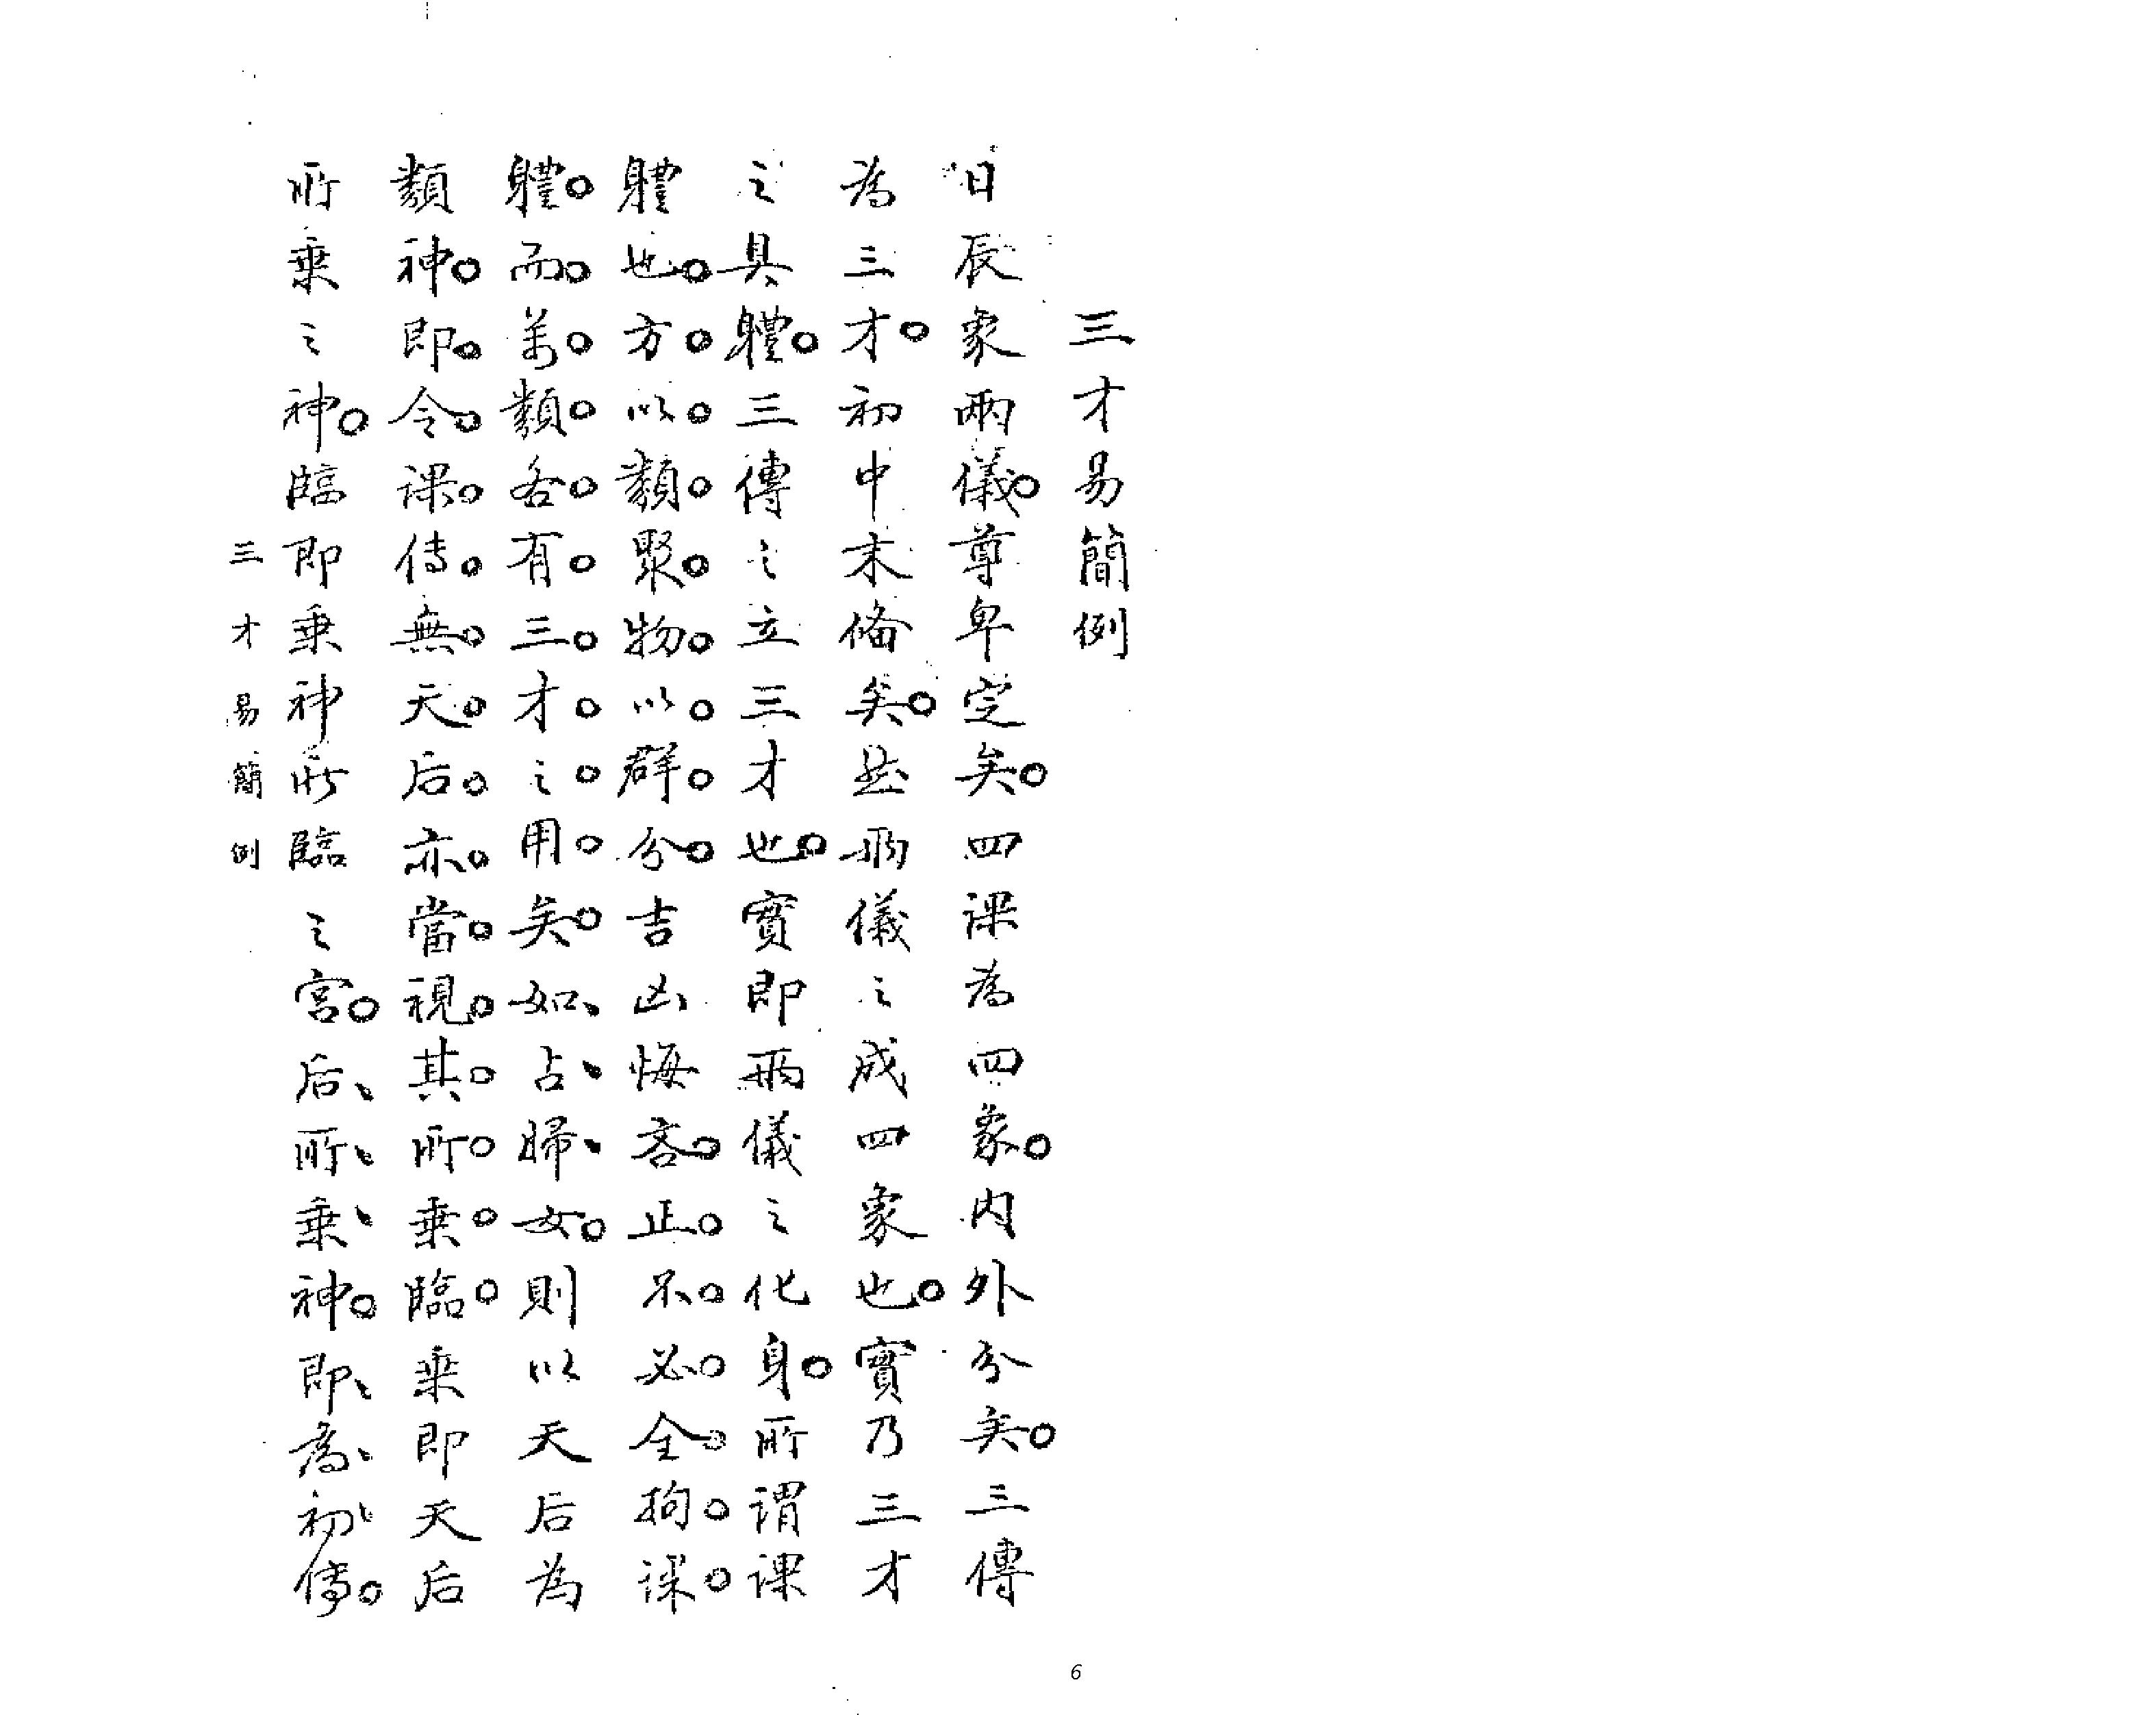 三才易簡例
日辰象兩儀。尊卑定矣。四課為四象。內外分矣。三傳
為三才。初中末備矣。然兩儀之成四象也。實乃三才
之具體。三傳之立三才也。實即兩儀之化身。所謂課
體也。方。以。類。聚。物。以。群。分。吉凶悔吝。正。不。必。全。拘。課。
體。而。萬。類。各。有。三。才。之。用。矣。如、占、婦、女。則以天后為
類神。即。令。課。傳。無。天。后。亦。當。視。其。所。乘。臨。乘即天后
所乘之神。臨即乘神所臨之宮。后、所、乘、神。即、為、初、傳。
三才易簡例
6